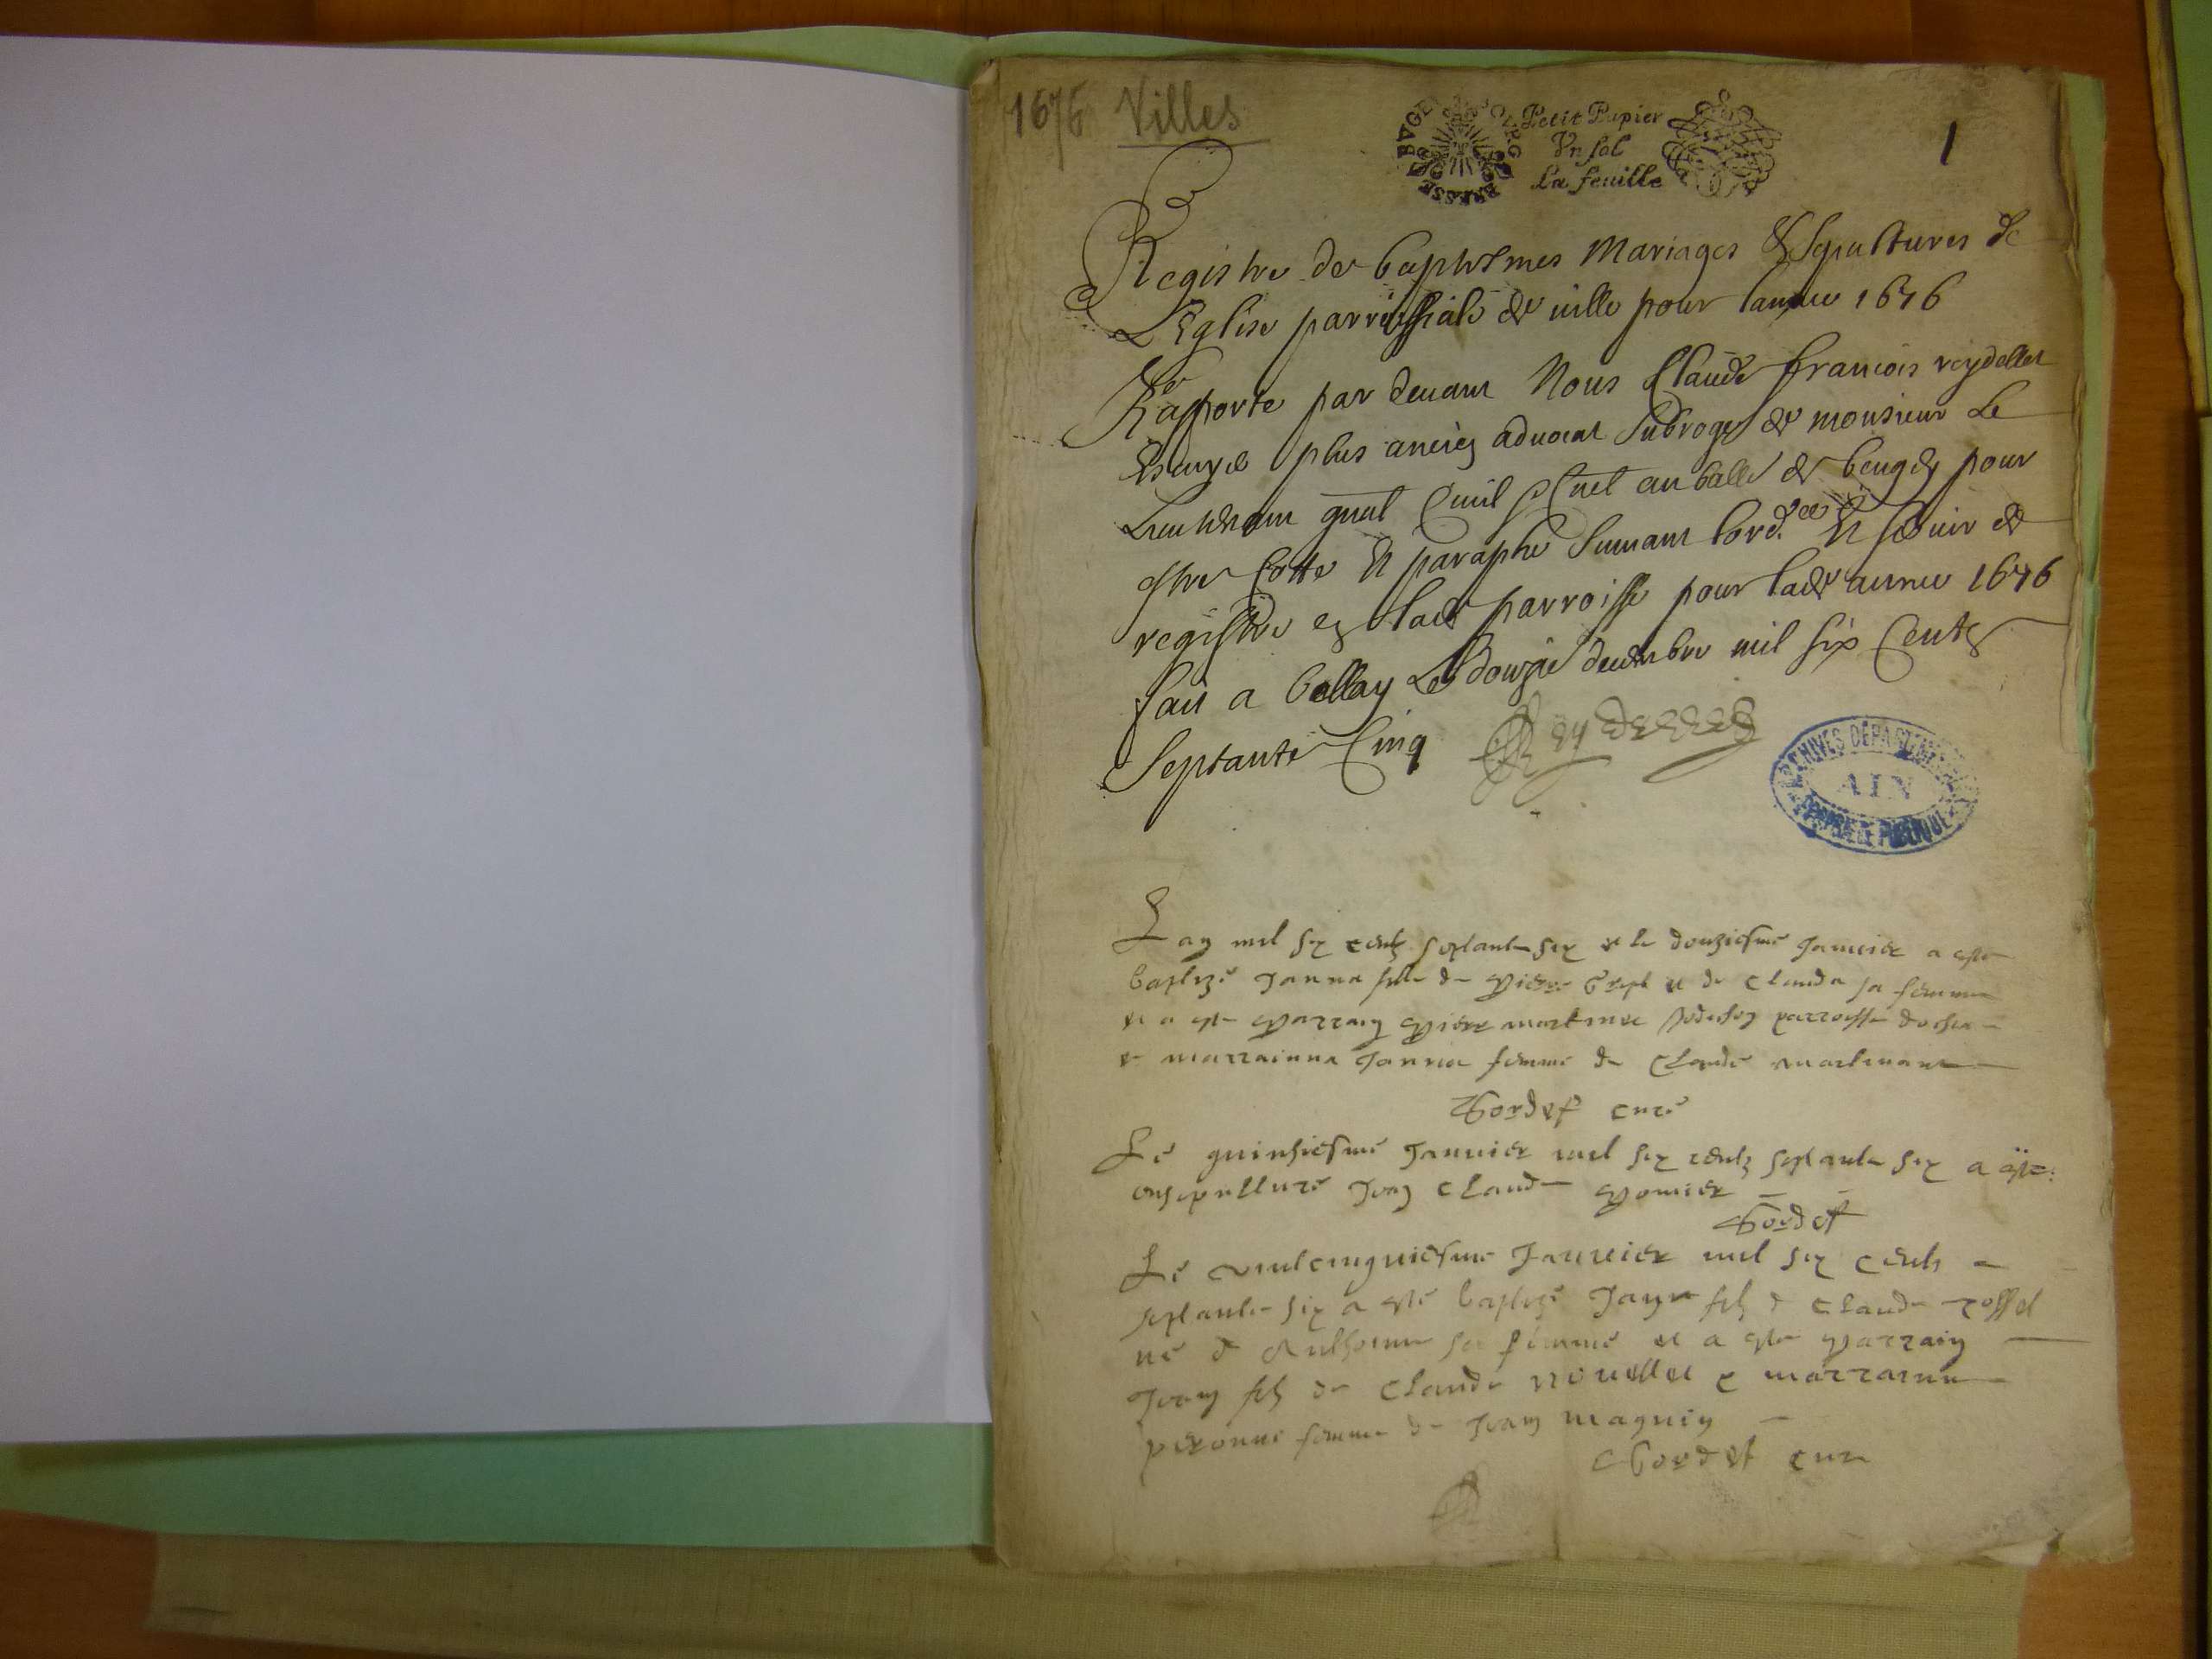 1676 Villes
BVGEY
BRESSE
Petit Papier
Vn sol
La feuille
1
Registre des baptesmes Mariages & Sepultures de
L'Eglise parrochiale de ville pour lannee 1676
Rapporte par deuant Nous Claude francois reydellet
Escuyer plus ancien aduocat subroge de monsieur Le
Lieutenant gnal Ciuil & Cnel au balle de beugey pour
estre Cotte Et paraphe suiuant lord.ce Et seruir de
registre en lade parroisse pour lade annee 1676
fait a bellay Le douzie decembre mil six Cents
Septante Cinq Reydellet
ARCHIVES DEPARTEMENTALES
AIN
PROPRIETE PUBLIQUE
Lan mil six cents septante six et le douziesme Januier a este
baptize Janna fille de Pierre et de Clauda sa femme
et a este Parrain Pierre martinet parroisse
et marrainna Janna femme de Claude martinant
Bordet curé
Le quinsiesme Januier mil six cents septante six a este
ensepulturé Jean Claude Pomier
Bordet
Le vintcinquiesme Januier mil six cents
septante six a esté baptizé filz de Claude rossel
né d'Anthoinna sa femme et a este parrain
Jean filz de Claude nouellet et marrainna
peronne femme de Jean magnin
Bordet curé